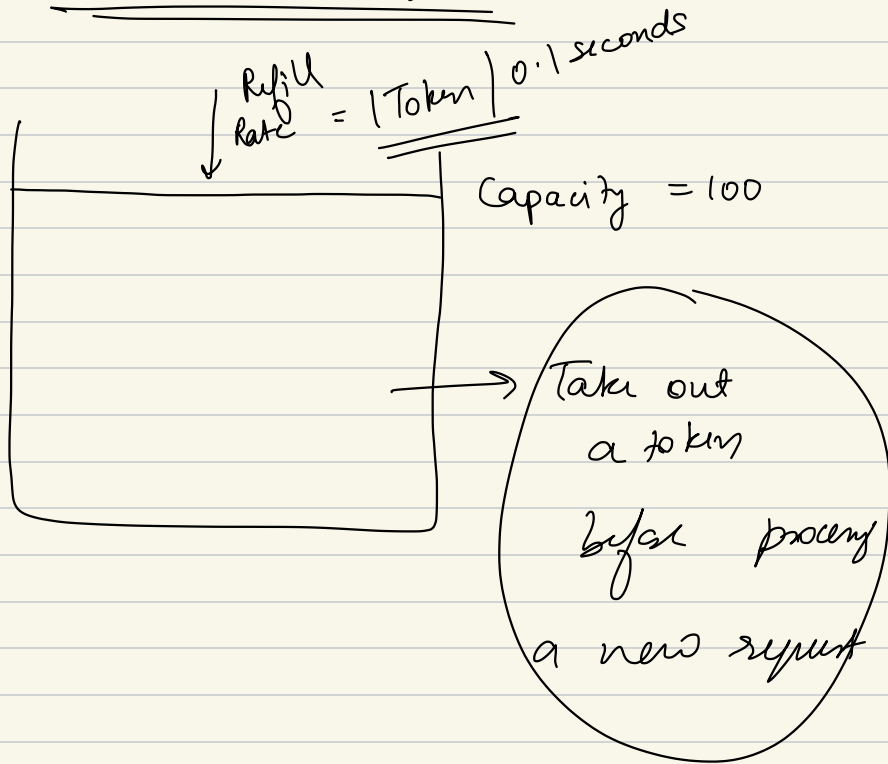 Refill
Rate = 1 Token | 0.1 seconds
Capacity = 100
Take out
a token
before processing
a new request